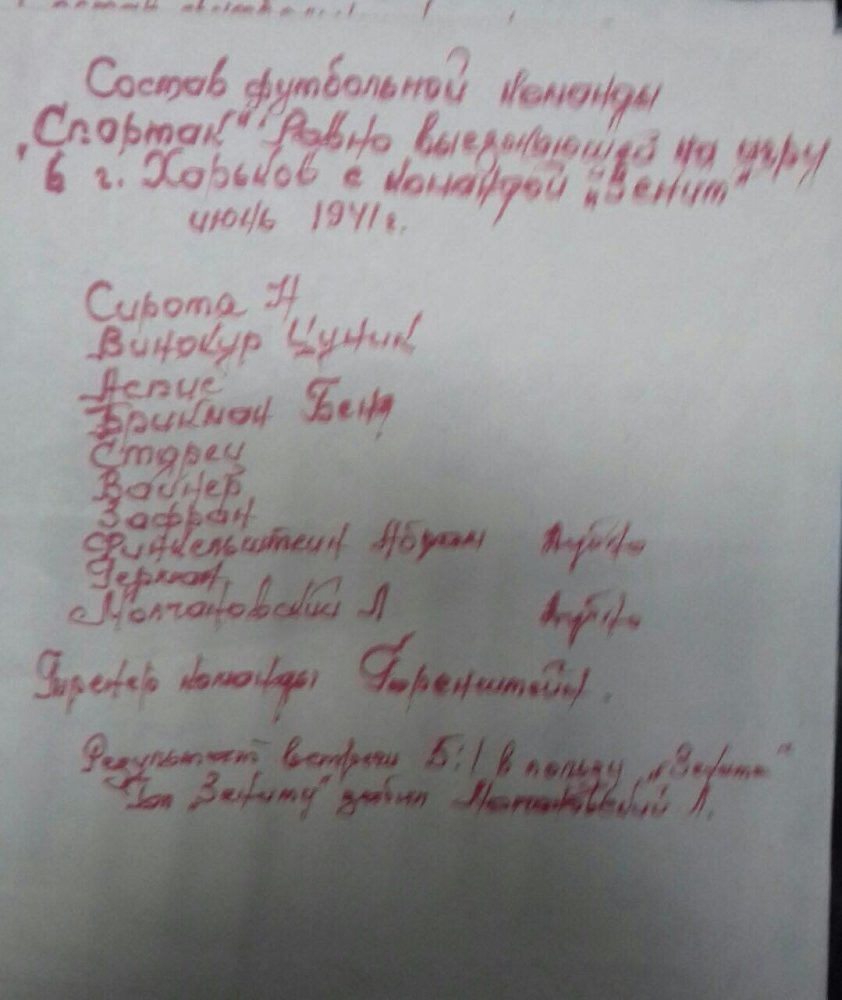 Состав футбольной команды
„Спартак" Ровно выезжающей на игру
в г. Харьков с командой „Зенит"
июнь 1941 г.
Сирота Н
Винокур Цуник
Аспис
Брикман Беня
Старец
Вайнер
Зафран
Финкельштейн Абрам Дубно
Герман
Молчановский Л Дубно
Тренер команды Горенштейн.
Результат встречи 5:1 в пользу „Зенита"
Гол „Зениту" забил Молчановский Л.